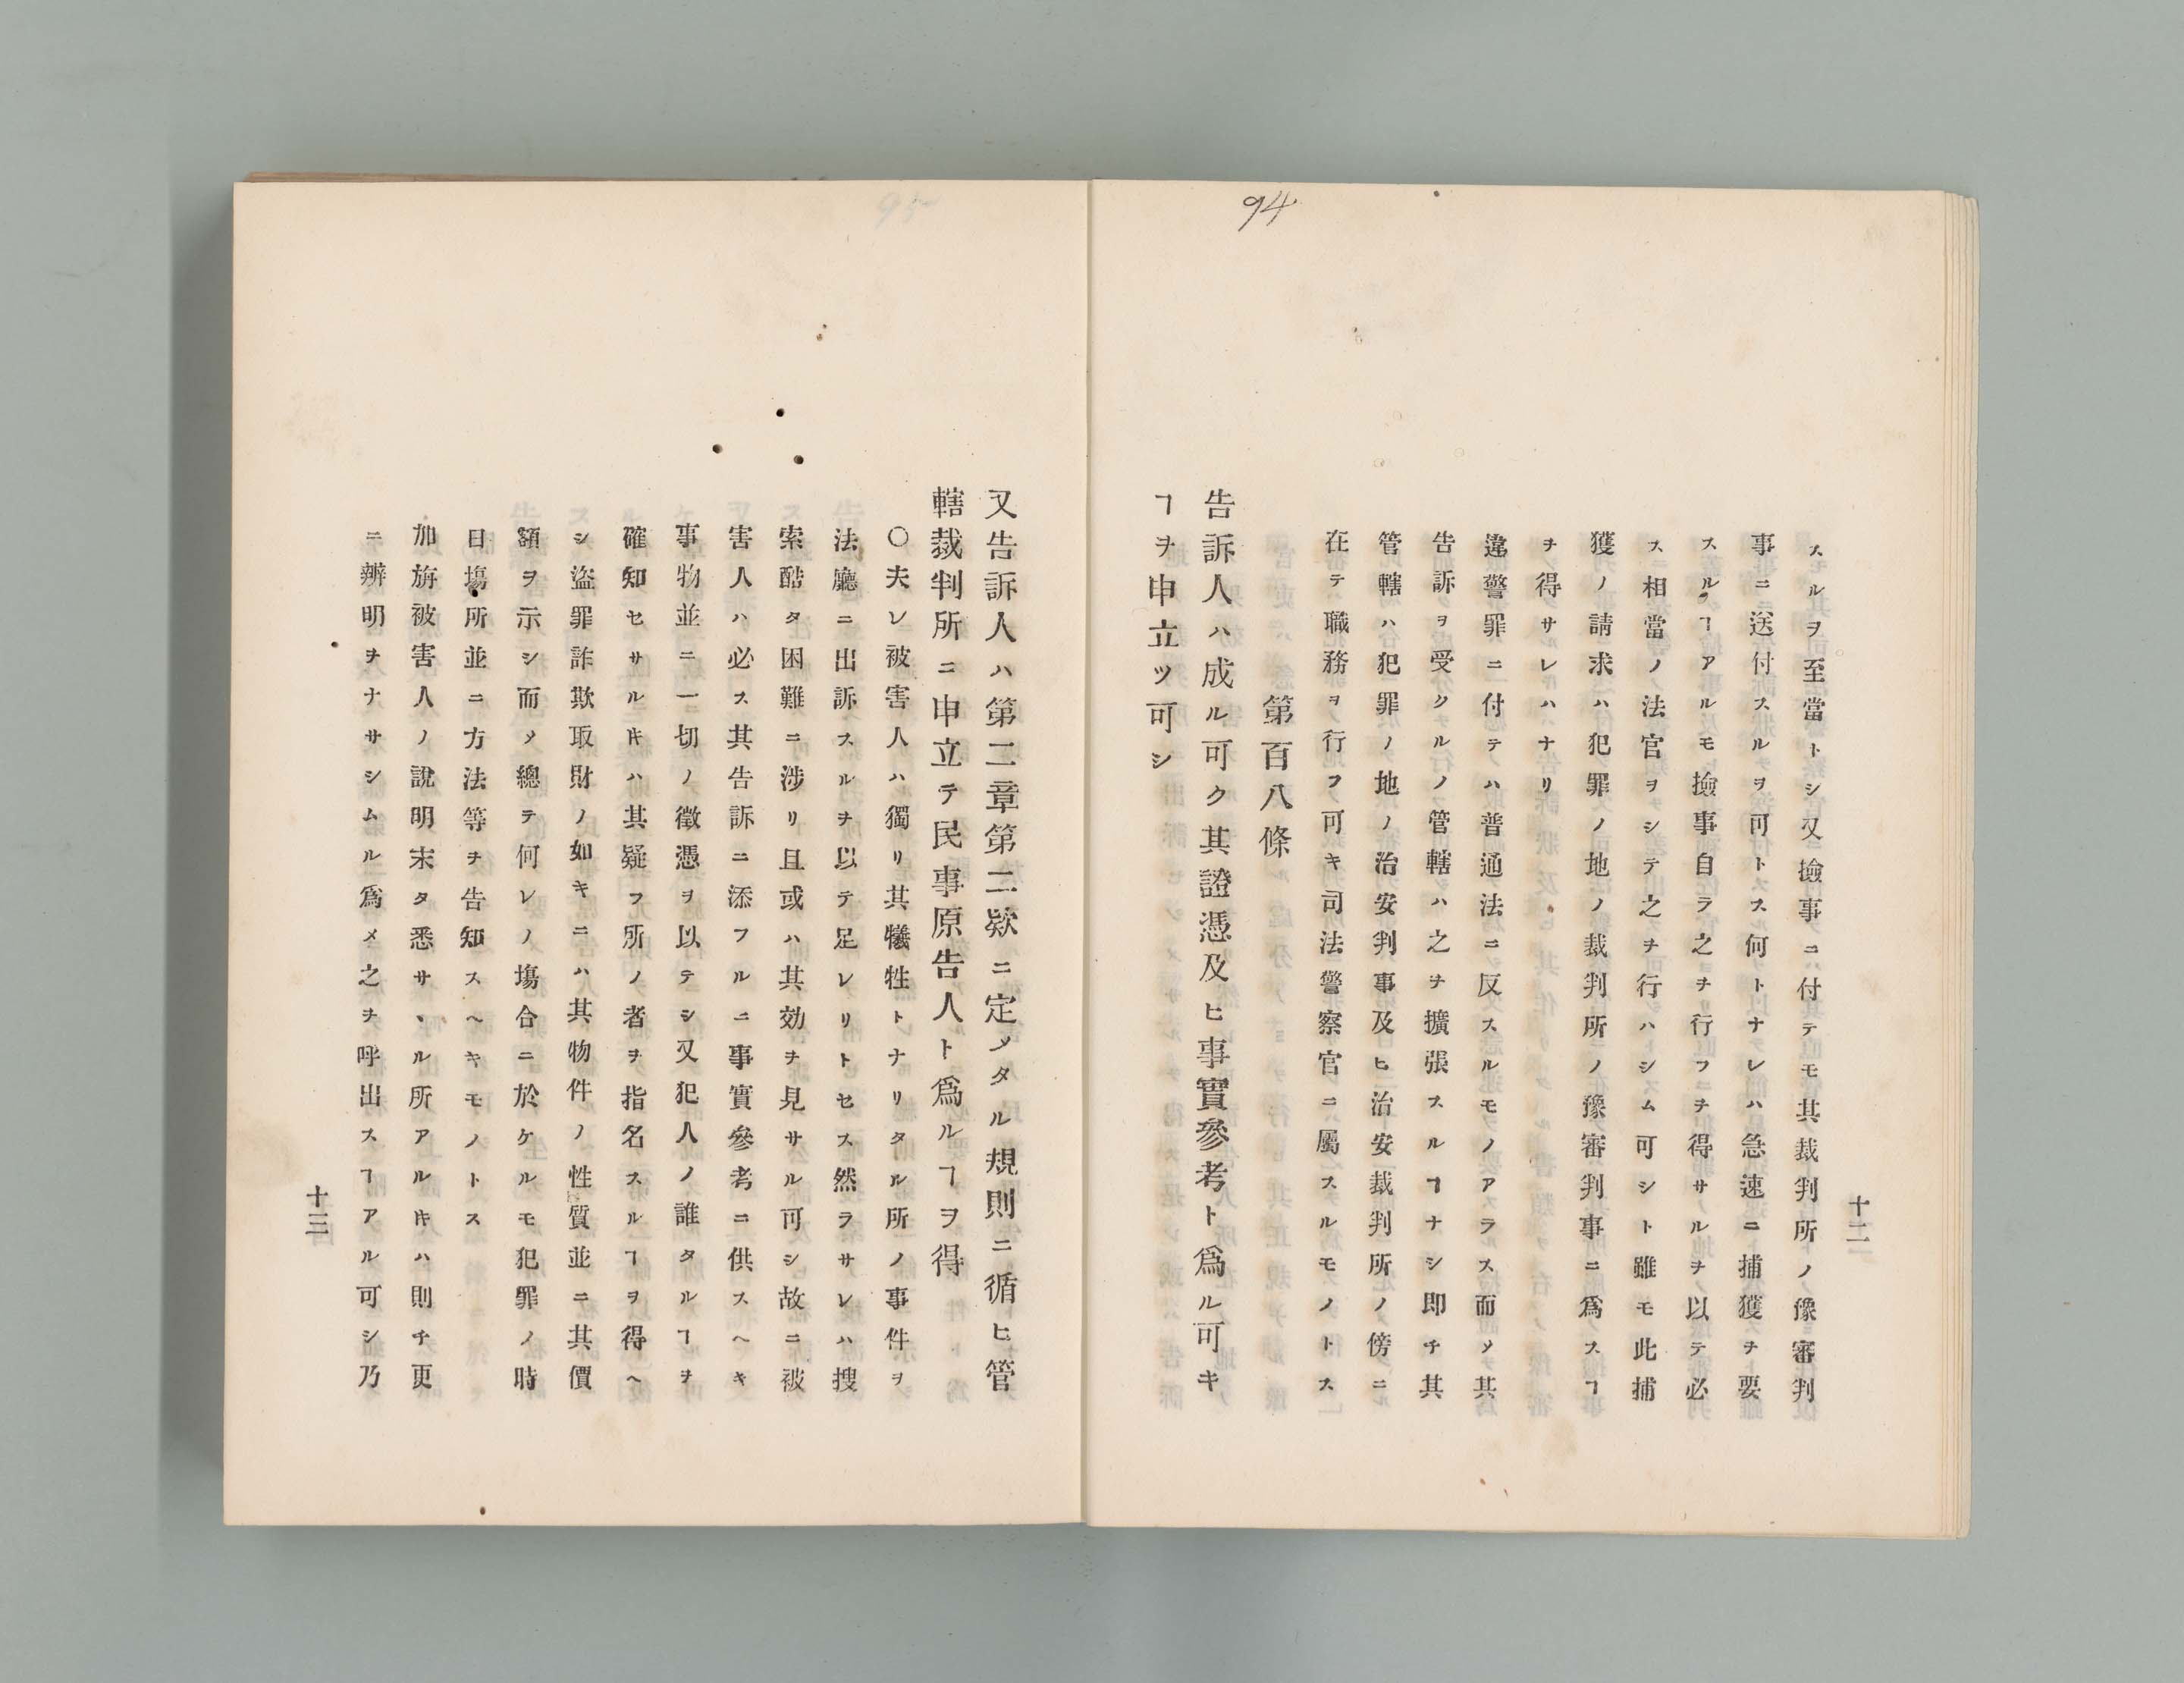 94
十二
スルヲ至當トシ又撿事ニ付テモ其裁判所ノ豫審判
事ニ送付スルヲ可トス何トナレハ急速ニ捕獲ヲ要
スルヿアルモ撿事自ラ之ヲ行フヲ得サルヲ以テ必
ス相當ノ法官ヲシテ之ヲ行ハシム可シト雖モ此捕
獲ノ請求ハ犯罪ノ地ノ裁判所ノ豫審判事ニ爲スヿ
ヲ得サレハナリ
違警罪ニ付テハ普通法ニ反スルモノアラス而メ其
告訴ヲ受クルノ管轄ハ之ヲ擴張スルヿナシ即チ其
管轄ハ犯罪ノ地ノ治安判事及ヒ治安裁判所ノ傍ニ
在テ職務ヲ行フ可キ司法警察官ニ屬スルモノトス
第百八條
告訴人ハ成ル可ク其證憑及ヒ事實參考ト爲ル可キ
ヿヲ申立ツ可シ
又告訴人ハ第二章第二欵ニ定メタル規則ニ循ヒ管
轄裁判所ニ申立テ民事原告人ト爲ルヿヲ得
〇夫レ被害人ハ獨リ其犧牲トナリタル所ノ事件ヲ
法廳ニ出訴スルヲ以テ足レリトセス然ラサレハ搜
索酷タ困難ニ涉リ且或ハ其効ヲ見サル可シ故ニ被
害人ハ必ス其告訴ニ添フルニ事實參考ニ供スヘキ
事物並ニ一切ノ徵憑ヲ以テシ又犯人ノ誰タルヿヲ
確知セサル𪜈ハ其疑フ所ノ者ヲ指名スルヿヲ得ヘ
シ盜罪詐欺取財ノ如キニハ其物件ノ性質並ニ其價
額ヲ示シ而メ總テ何レノ塲合ニ於ケルモ犯罪ノ時
日塲所並ニ方法等ヲ告知スヘキモノトス
加旃被害人ノ說明末タ悉サヽル所アルキハ則チ更
ニ辨明ヲナサシムル爲メ之ヲ呼出スヿアル可シ乃
十三